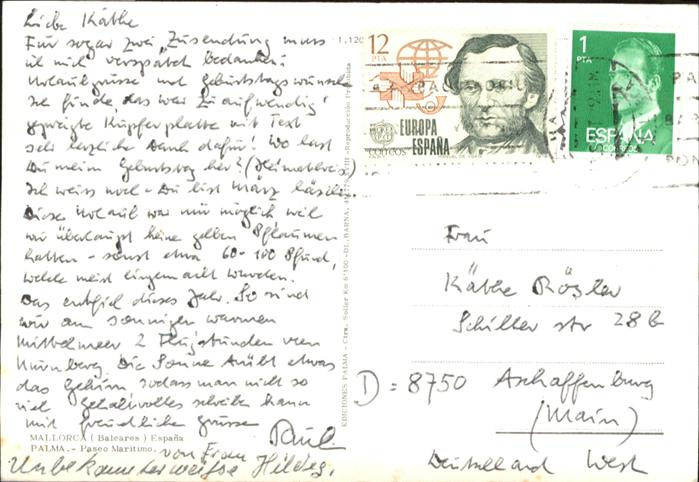 Liebe Käthe
Für sogar zwei Zusendung muss
ich mich verspätet bedanken:
Urlaubsgrüsse und Geburtstagswünsche
Sie finde, das war zu aufwendig!
geprägte Kupferplatte mit Text
sehr herzliche Dank dafür! Wo hast
Du meinen Geburtstag her? (Heimatkreis)
Ich weiss noch - Du bist März
Dieser Urlaub war nur möglich weil
wir überhaupt keine gelben Pflaumen
hatten - sonst etwa 60-100 Pfund,
welche meist eingemacht wurden.
Das entfiel dieses Jahr. So sind
wir am sonnigen warmen
Mittelmeer 2 Flugstunden von
Nürnberg. Die Sonne drückt etwas
das Gehirn sodass man nicht so
viel gehaltvolles schreiben kann
mit freundliche Grüsse
Paul
von Frau
Unbekannterweise Hildeg.
MALLORCA (Baleares) España
PALMA. - Paseo Marítimo.
EDICIONES PALMA - Ctra. Soller Km 6'100 - DL. BARNA.
Reproducción Prohibida
12
PTA
EUROPA
ESPAÑA
CORREOS
1
PTA
ESPAÑA
CORREOS
Frau
Käthe Rösler
Schiller str 28 b
D = 8750 Aschaffenburg
(Main)
Deutschland West